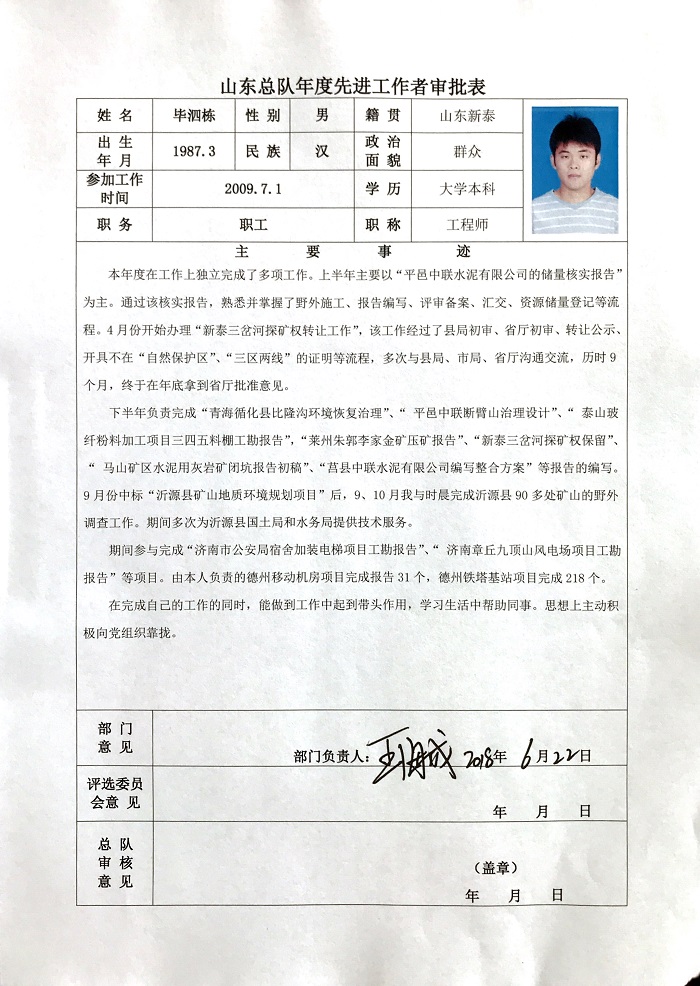 山东总队年度先进工作者审批表
姓 名 毕泗栋 性 别 男 籍 贯 山东新泰
出 生 年 月 1987.3 民 族 汉 政 治 面 貌 群众
参加工作 时间 2009.7.1 学 历 大学本科
职 务 职工 职 称 工程师
主 要 事 迹
本年度在工作上独立完成了多项工作。上半年主要以“平邑中联水泥有限公司的储量核实报告”
为主。通过该核实报告，熟悉并掌握了野外施工、报告编写、评审备案、汇交、资源储量登记等流
程。4 月份开始办理“新泰三岔河探矿权转让工作”，该工作经过了县局初审、省厅初审、转让公示、
开具不在“自然保护区”、“三区两线”的证明等流程，多次与县局、市局、省厅沟通交流，历时 9
个月，终于在年底拿到省厅批准意见。
下半年负责完成“青海循化县比隆沟环境恢复治理”、“ 平邑中联断臂山治理设计”、“ 泰山玻
纤粉料加工项目三四五料棚工勘报告”，“莱州朱郭李家金矿压矿报告”、“新泰三岔河探矿权保留”、
“ 马山矿区水泥用灰岩矿闭坑报告初稿”、“莒县中联水泥有限公司编写整合方案”等报告的编写。
9 月份中标“沂源县矿山地质环境规划项目”后，9、10 月我与时晨完成沂源县 90 多处矿山的野外
调查工作。期间多次为沂源县国土局和水务局提供技术服务。
期间参与完成“济南市公安局宿舍加装电梯项目工勘报告”、“ 济南章丘九顶山风电场项目工勘
报告”等项目。由本人负责的德州移动机房项目完成报告 31 个，德州铁塔基站项目完成 218 个。
在完成自己的工作的同时，能做到工作中起到带头作用，学习生活中帮助同事。思想上主动积
极向党组织靠拢。
部 门
意 见
部门负责人： 2018年 6月22日
评选委员
会意 见
年 月 日
总 队
审 核
意 见
（盖章）
年 月 日